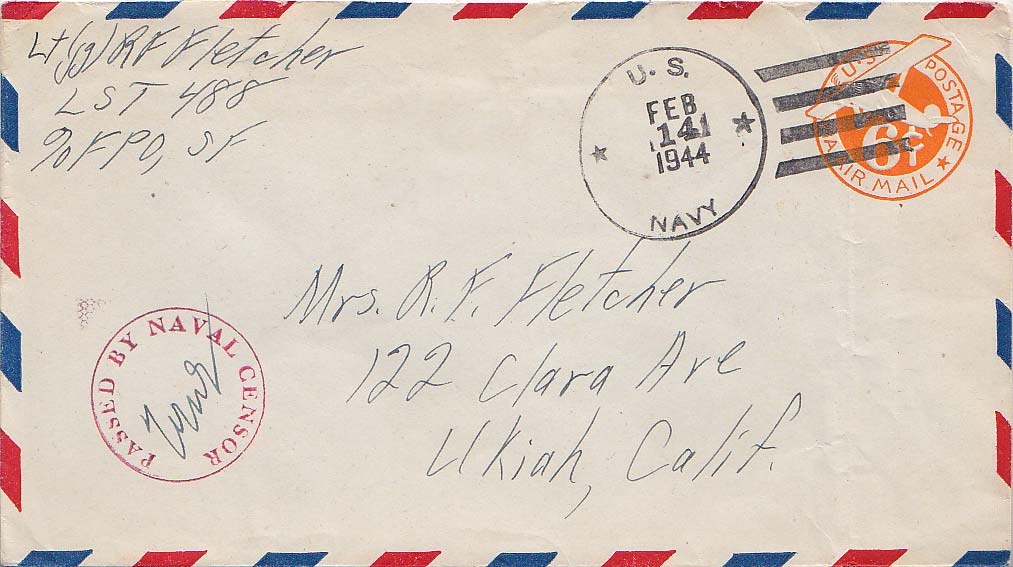 Lt(jg) R F Fletcher
LST 488
℅ FPO, SF
U. S.
FEB
1944
NAVY
U.S. POSTAGE
6¢
AIR MAIL
Mrs. R. F. Fletcher
122 Clara Ave
Ukiah, Calif.
PASSED BY NAVAL CENSOR